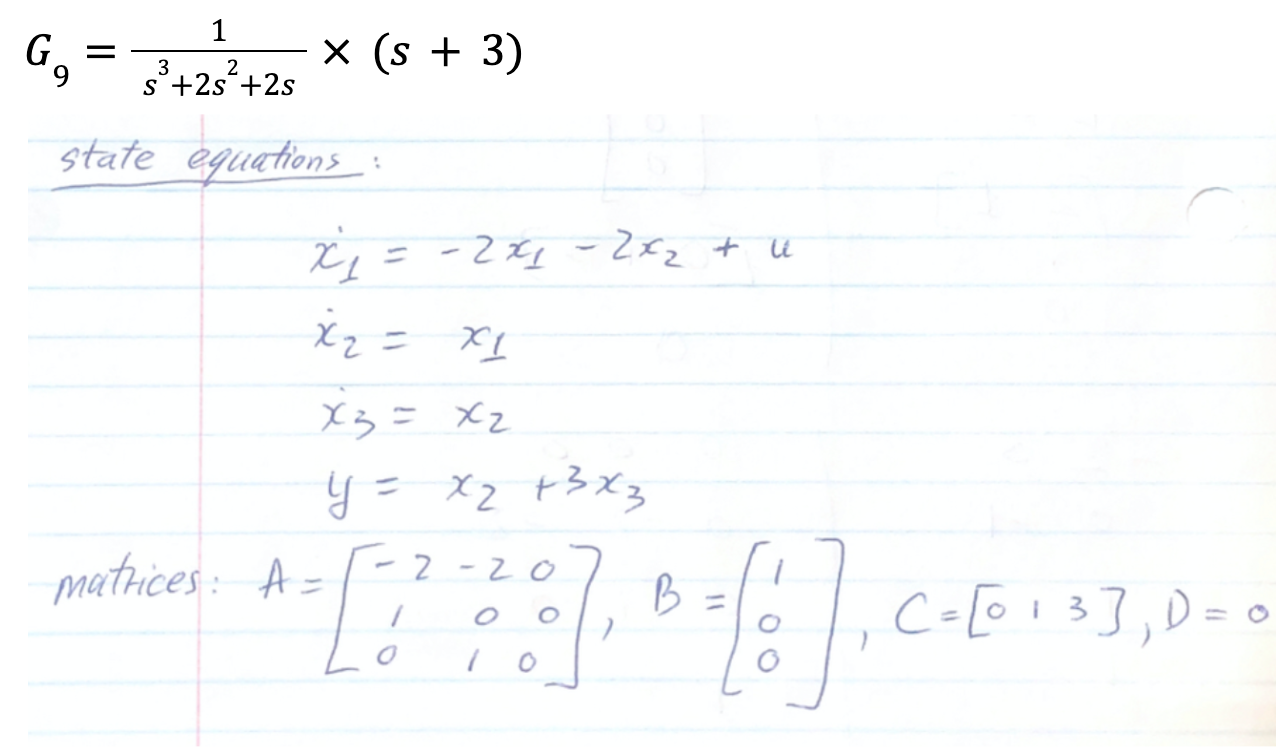 G₉ = 1/(s³+2s²+2s) × (s + 3)
state equations :
ẋ₁ = -2x₁ - 2x₂ + u
ẋ₂ = x₁
ẋ₃ = x₂
y = x₂ + 3x₃
matrices : A = [-2 -2 0; 1 0 0; 0 1 0], B = [1; 0; 0], C = [0 1 3], D = 0